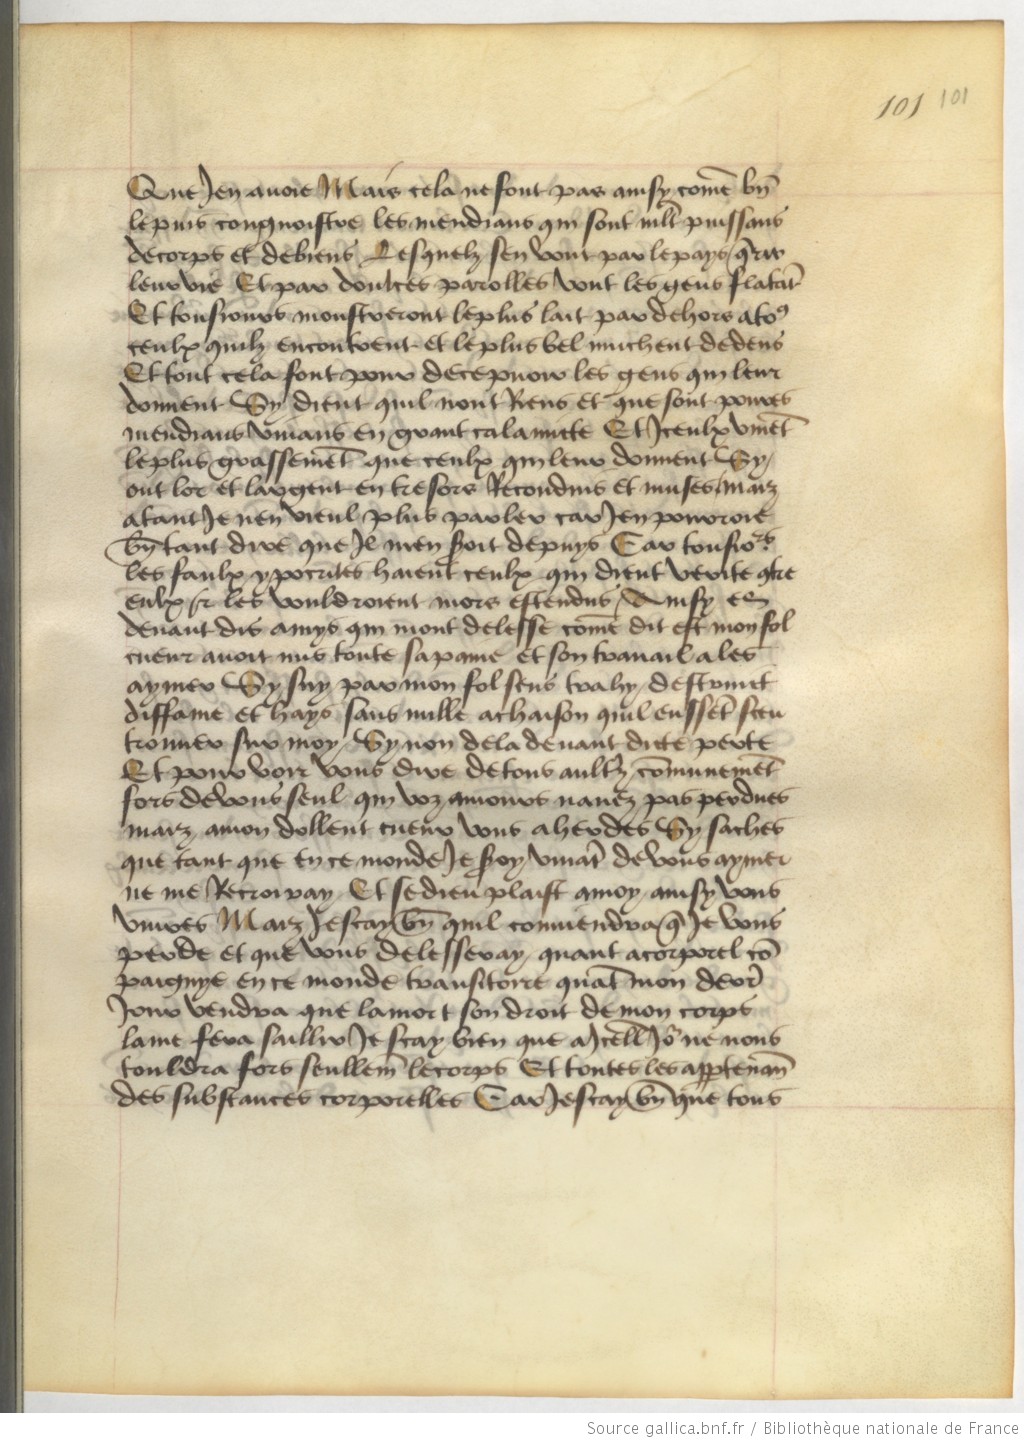 101 101
Que Jen auoie Mais cela ne font pas ainsy come bn̄
le puis congnoistre les mendians qui sont mlt puissans
de corps et de biens Lesquelz sen vont par le pays q̄rir
leur vie Et par doulces parolles vont les gens flatat̄
Et tousiours monstreront le plus lait par dehors a to9
ceulx quilz encontrent et le plus bel muchent dedens
Et tout cela font pour decepuoir les gens qui leur
donnent Sy dient quil nont Riens et que sont poures
mendians viuans en grant calamite Et Iceulx viuet̄
le plus grassemet̄ que ceulx qui leur donnent Sy
ont lor et largent en tresors Recondus et muses maiz
atant Je nen vieul plus parler car Jen pouroie
bn̄ tant dire que Il men soit de puys Car tousiors
les faulx ypocrites haient ceulx qui dient verite q̄tre
eulx et les vouldroient mors estendus Ainsy
deuant dis amys qui mont delesse come dit est mon fol
cueur auoit mis toute sa paine et son trauail a les
aymer Sy suy par mon fol sens trahy destruict
diffame et hays sans nulle achaison quil eusset̄ sceu
trouuer sur moy Sy non de la deuant dicte perte
Et pour voir vous dire de tous aultz cōmunemet̄
fors de vous seul qui voz amours nauez pas perdues
maiz a mon dollent cueur vous aherdes Sy saches
que tant que en ce monde Je soy viuat̄ de vous aymer
ne me Recroiray Et se dieu plaist a moy ainsy vous
viures Maiz Je scay bn̄ quil conuiendra q̄ Je vous
perde et que vous delesseray quant a corporel cō
paignye en ce monde transitoire quat̄ mon der̄
Jour vendra que la mort son droit de mon corps
lame fera saillir Je scay bien que a Icell Jo ne nous
touldra fors seullem̄ le corps Et toutes les apptenan̄
des substances corporelles Car Je scay bn̄ que tous
Source gallica.bnf.fr / Bibliothèque nationale de France